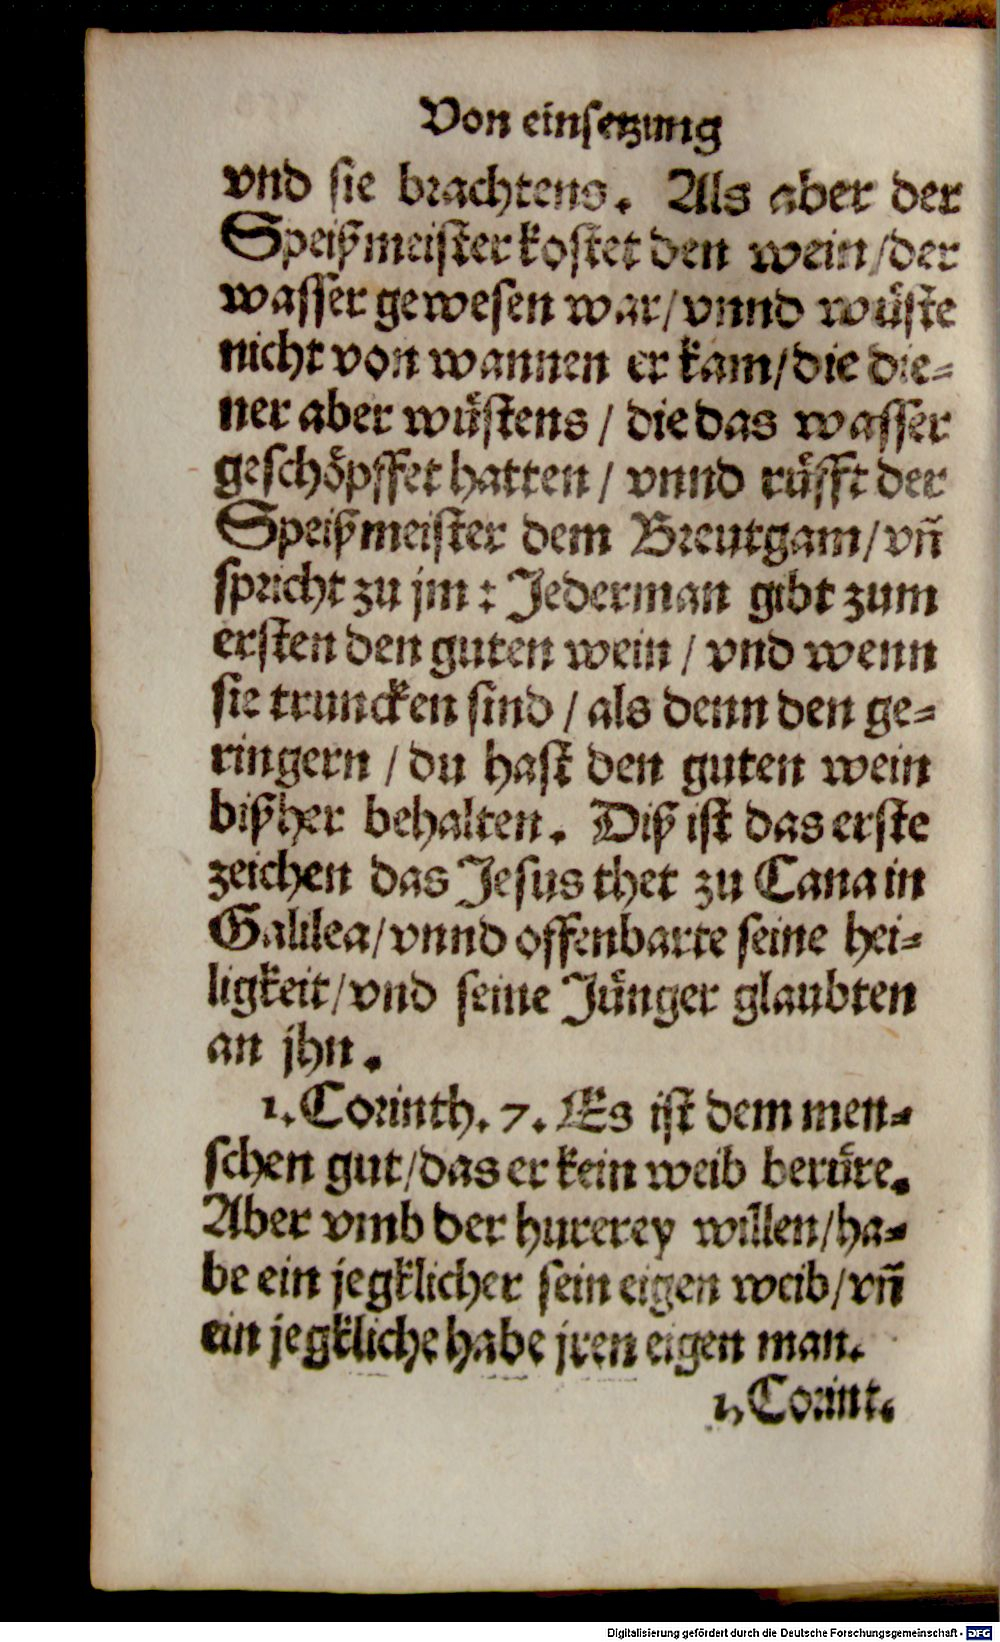 Von einsetzung
vnd sie brachtens. Als aber der
Speißmeister kostet den wein/der
wasser gewesen war/vnnd wuͤste
nicht von wannen er kam/die die-
ner aber wuͤstens / die das wasser
geschoͤpffet hatten / vnnd ruͤfft der
Speißmeister dem Breutgam/vñ
spricht zu jm : Jederman gibt zum
ersten den guten wein / vnd wenn
sie truncken sind / als denn den ge-
ringern / du hast den guten wein
bißher behalten. Diß ist das erste
zeichen das Jesus thet zu Cana in
Galilea/vnnd offenbarte seine hei-
ligkeit/vnd seine Juͤnger glaubten
an jhn.
1. Corinth. 7. Es ist dem men-
schen gut/das er kein weib beruͤre.
Aber vmb der hurerey willen/ha-
be ein jegklicher sein eigen weib/vñ
ein jegkliche habe jren eigen man.
1. Corint.
Digitalisierung gefördert durch die Deutsche Forschungsgemeinschaft - DFG